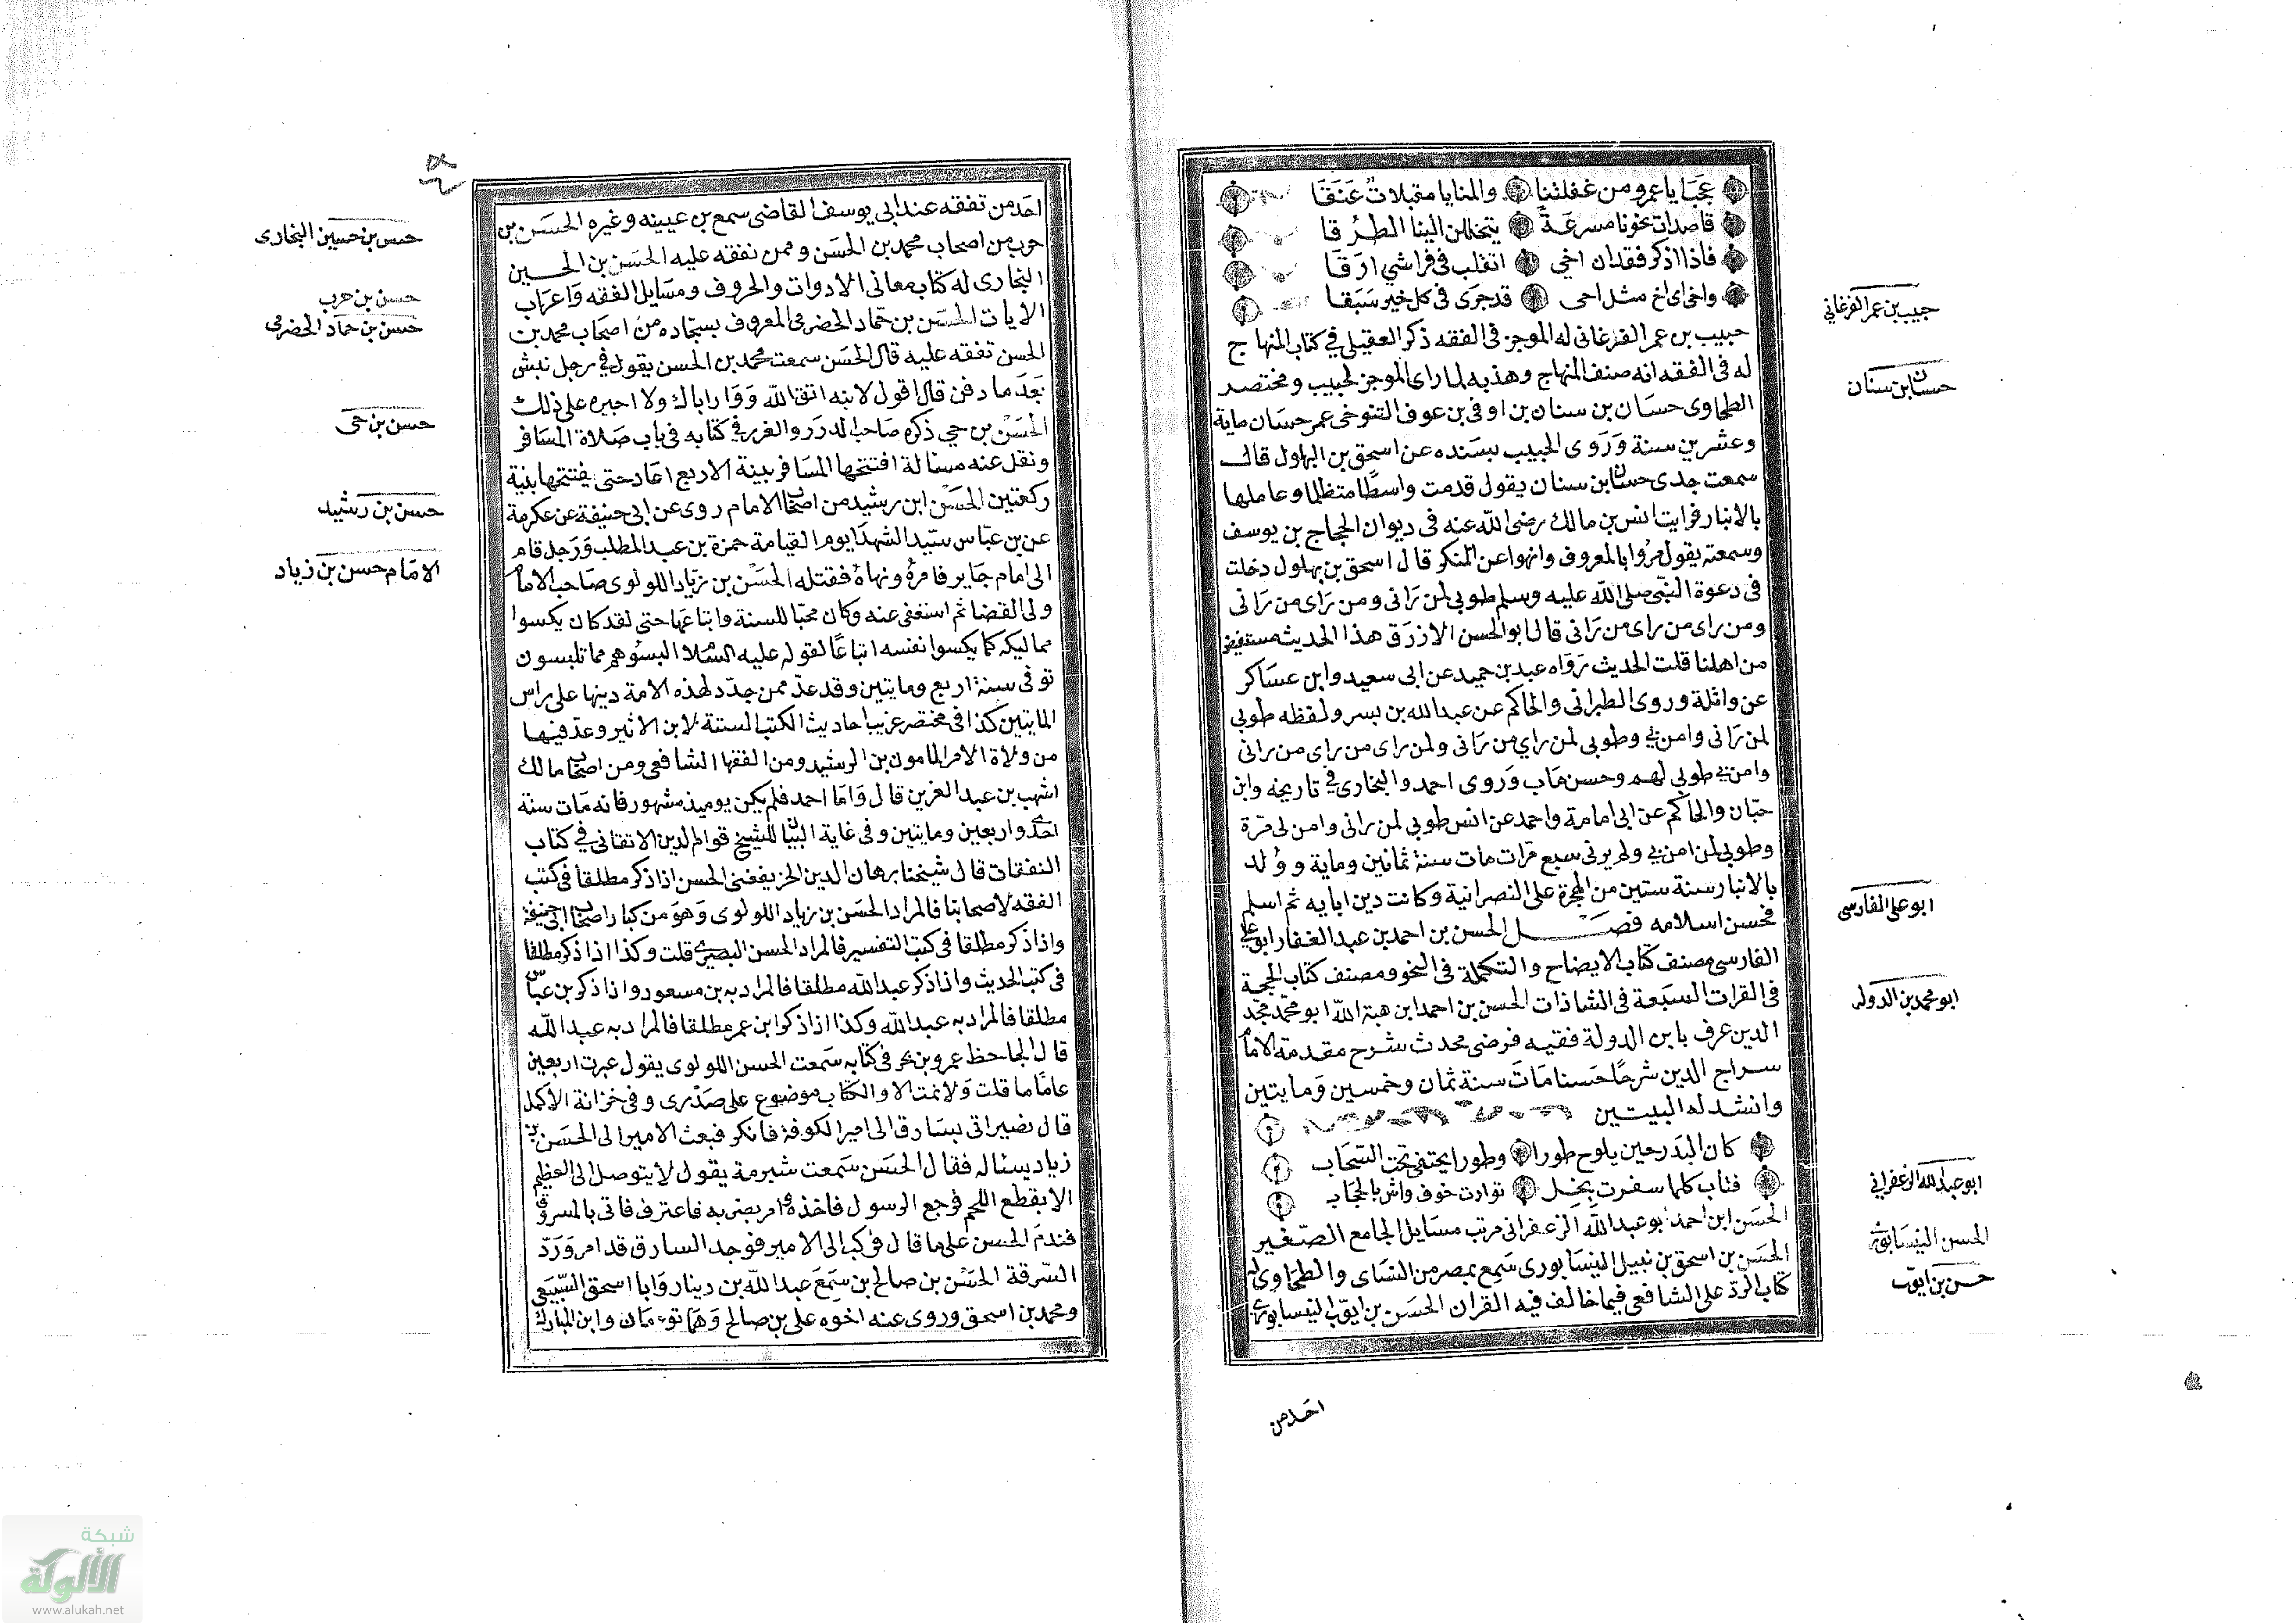 عجبا يا عمرو من غفلتنا والمنايا مقبلات عنقا
قاصدات نحونا مسرعة يتخللن الينا الطرقا
فاذا اذكر فقدان اخي اتقلب في فراشي ارقا
واخي اي اخ مثل اخي قد جرى في كل خير سبقا
حبيب بن عمر الفرغاني له الموجز في الفقه ذكر العقيلي في كتاب المنهاج
له في الفقه انه صنف المنهاج وهذبه لما راى الموجز لحبيب ومختصر
الطحاوى حسان بن سنان بن اوفى بن عوف التنوخى عمر حسان ماية
وعشرين سنة وروى الخطيب بسنده عن اسحق بن البهلول قال
سمعت جدى حسان بن سنان يقول قدمت واسطا متظلما وعاملها
بالانبار فرايت انس بن مالك رضى الله عنه فى ديوان الحجاج بن يوسف
وسمعته يقول مروا بالمعروف وانهوا عن المنكر قال اسحق بن بهلول دخلت
فى دعوة النبى صلى الله عليه وسلم طوبى لمن رانى ومن راى من رانى
ومن راى من راى من رانى قال ابو الحسن الازرق هذا الحديث مستفيض
من اهلنا قلت الحديث رواه عبد بن حميد عن ابى سعيد وابن عساكر
عن واثلة وروى الطبرانى والحاكم عن عبد الله بن بسر ولفظه طوبى
لمن رانى وامن بي وطوبى لمن راي من رانى ولمن راى من راى من رانى
وامن بي طوبى لهم وحسن ماب وروى احمد والبخارى في تاريخه وابن
حبان والحاكم عن ابى امامة واحمد عن انس طوبى لمن رانى وامن بى مرة
وطوبى لمن امن بي ولم يرنى سبع مرات مات سنة ثمانين وماية وولد
بالانبار سنة ستين من الهجرة على النصرانية وكانت دين ابايه ثم اسلم
فحسن اسلامه فصل الحسن بن احمد بن عبد الغفار ابو على
الفارسى مصنف كتاب الايضاح والتكملة فى النحو ومصنف كتاب الحجة
فى القرات السبعة فى الشاذات الحسن بن احمد ابن هبة الله ابو محمد مجد
الدين عرف بابن الدولة فقيه فرضى محدث شرح مقدمة الامام
سراج الدين شرحا حسنا مات سنة ثمان وخمسين ومايتين
وانشد له البيتين
كان البدر حين يلوح طورا وطورا يختفى تحت السحاب
فتاب كلما سفرت بخل توارت خوف واش بالحجاب
الحسن ابن احمد ابو عبد الله الزعفرانى مرتب مسايل الجامع الصغير
الحسن بن اسحق بن نبيل النيسابورى سمع بمصر من النساى والطحاوى له
كتاب الرد على الشافعى فيما خالف فيه القران الحسن بن ايوب النيسابورى
احد من
حبيب بن عمر الفرغاني
حسان بن سنان
ابو على الفارسى
ابو محمد بن الدوله
ابو عبد الله الزعفراني
الحسن النيسابورى
حسن بن ايوب
احد من تفقه عند ابى يوسف القاضى سمع بن عيينه وغيره الحسن بن
حرب من اصحاب محمد بن الحسن وممن تفقه عليه الحسن بن الحسين
البخارى له كتاب معانى الادوات والحروف ومسايل الفقه واعراب
الايات الحسن بن حماد الحضرمى المعروف بسجاده من اصحاب محمد بن
الحسن تفقه عليه قال الحسن سمعت محمد بن الحسن يقول في رجل نبش
بعد ما دفن قال اقول لابنه اتق الله ووار اباك ولا اجبره على ذلك
الحسن بن حي ذكره صاحب الدرر والغرر في كتابه فى باب صلاة المسافر
ونقل عنه مسالة افتتحها المسافر بنية الاربع اعاد حتى يفتتحها بنية
ركعتين الحسن ابن رشيد من اصحاب الامام روى عن ابى حنيفة عن عكرمة
عن بن عباس سيد الشهدا يوم القيامة حمزة بن عبد المطلب ورجل قام
الى امام جاير فامره ونهاه فقتله الحسن بن زياد اللولوى صاحب الامام
ولى القضا ثم استعفى عنه وكان محبا للسنة واتباعها حتى لقد كان يكسوا
مماليكه كما يكسوا نفسه اتباعا لقوله عليه السلام البسوهم مما تلبسون
توفى سنة اربع ومايتين وقد عد ممن جدد لهذه الامة دينها على راس
المايتين كذا فى مختصر غريب احاديث الكتب الستة لابن الاثير وعد فيها
من ولاة الامر المامون بن الرشيد ومن الفقها الشافعى ومن اصحاب مالك
اشهب بن عبد العزيز قال واما احمد فلم يكن يوميذ مشهورا فانه مات سنة
احدى واربعين ومايتين وفى غاية البيان للشيخ قوام الدين الاتقانى في كتاب
النفقات قال شيخنا برهان الدين الخريفغنى الحسن اذا ذكر مطلقا فى كتب
الفقه لاصحابنا فالمراد الحسن بن زياد اللولوى وهو من كبار اصحاب ابى حنيفة
واذا ذكر مطلقا فى كتب التفسير فالمراد الحسن البصرى قلت وكذا اذا ذكر مطلقا
فى كتب الحديث واذا ذكر عبد الله مطلقا فالمراد به بن مسعود واذا ذكر بن عباس
مطلقا فالمراد به عبد الله وكذا اذا ذكر ابن عمر مطلقا فالمراد به عبد الله
قال الجاحظ عمرو بن بحر فى كتابه سمعت الحسن اللولوى يقول عبرت اربعين
عاما ما قلت ولا نمت الا والكتاب موضوع على صدرى وفى خزانة الاكمل
قال نصير اتى بسارق الى امير الكوفة فانكر فبعث الامير الى الحسن بن
زياد يساله فقال الحسن سمعت شبرمة يقول لا يتوصل الى العظم
الا بقطع اللحم فرجع الرسول فاخذه وامر بضربه فاعترف فاتى بالمسروق
فندم الحسن على ما قال فركب الى الامير فوجد السارق قد امر ورد
السرقة الحسن بن صالح بن سمع عبد الله بن دينار وابا اسحق السبيعى
ومحمد بن اسحق وروى عنه اخوه على بن صالح وهما تومان وابن المبارك
حسن بن حسين البخارى
حسن بن حرب
حسن بن حماد الحضرمى
حسن بن حى
حسن بن رشيد
الامام حسن بن زياد
شبكة
الألوكة
www.alukah.net